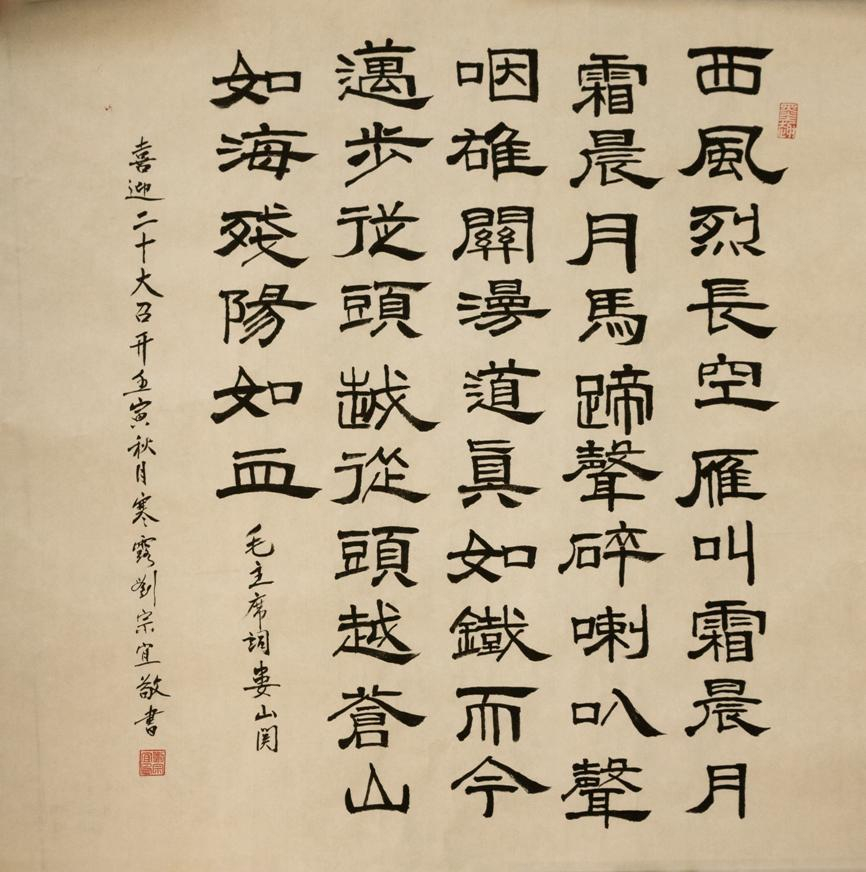 西風烈長空雁叫霜晨月
霜晨月馬蹄聲碎喇叭聲
咽雄關漫道真如鐵而今
邁步從頭越從頭越蒼山
如海殘陽如血
毛主席詞婁山関
喜迎二十大召开壬寅秋月寒露劉宗宜敬書